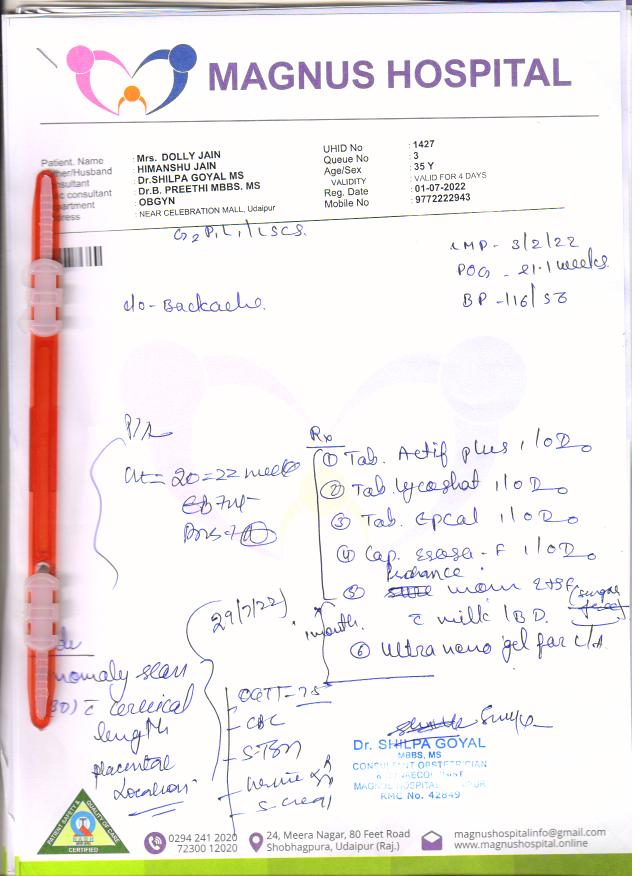 MAGNUS HOSPITAL
Patient. Name : Mrs. DOLLY JAIN
ther/Husband : HIMANSHU JAIN
onsultant : Dr.SHILPA GOYAL MS
consultant : Dr.B. PREETHI MBBS. MS
partment : OBGYN
dress : NEAR CELEBRATION MALL, Udaipur
UHID No : 1427
Queue No : 3
Age/Sex : 35 Y
VALIDITY : VALID FOR 4 DAYS
Reg. Date : 01-07-2022
Mobile No : 9772222943
G2P1L1/LSCS.
LMP - 3/2/22
POG - 21.1 weeks.
BP - 116/56
c/o - Backache.
P/A
Ut = 20=22 week
Rx
① Tab. Actif plus 1/OD
② Tab. Lycoshat 1/OD
③ Tab. Epcal 1/OD
④ Cap. Esosa-F 1/OD
⑤ mom 2tsf (sugar free)
c milk 1BD.
1 month
⑥ Ultra nano gel for L/A
29/7/22
nomaly scan
c cervical
length
placental
location
OGTT - 75
CBC
S. creat
Dr. SHILPA GOYAL
MBBS, MS
CONSULTANT OBSTETRICIAN
RMC No. 42849
PATIENT SAFETY & QUALITY OF CARE
CERTIFIED
0294 241 2020
72300 12020
24, Meera Nagar, 80 Feet Road
Shobhagpura, Udaipur (Raj.)
magnushospitalinfo@gmail.com
www.magnushospital.online